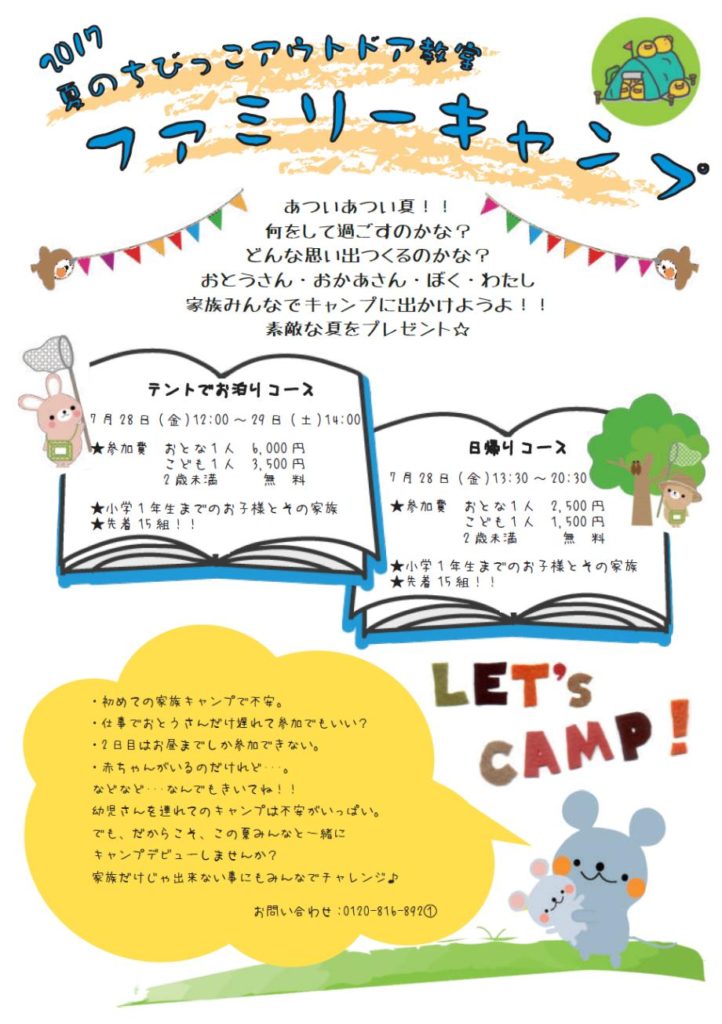 2017
夏のちびっこアウトドア教室
ファミリーキャンプ
あついあつい夏！！
何をして過ごすのかな？
どんな思い出つくるのかな？
おとうさん・おかあさん・ぼく・わたし
家族みんなでキャンプに出かけようよ！！
素敵な夏をプレゼント☆
テントでお泊りコース
7月28日(金)12:00～29日(土)14:00
★参加費 おとな1人 6,000円
こども1人 3,500円
2歳未満 無 料
★小学1年生までのお子様とその家族
★先着15組！！
日帰りコース
7月28日(金)13:30～20:30
★参加費 おとな1人 2,500円
こども1人 1,500円
2歳未満 無 料
★小学1年生までのお子様とその家族
★先着15組！！
LET's
CAMP!
・初めての家族キャンプで不安。
・仕事でおとうさんだけ遅れて参加でもいい？
・2日目はお昼までしか参加できない。
・赤ちゃんがいるのだけれど…。
などなど…なんでもきいてね！！
幼児さんを連れてのキャンプは不安がいっぱい。
でも、だからこそ、この夏みんなと一緒に
キャンプデビューしませんか？
家族だけじゃ出来ない事にもみんなでチャレンジ♪
お問い合わせ：0120-816-892①